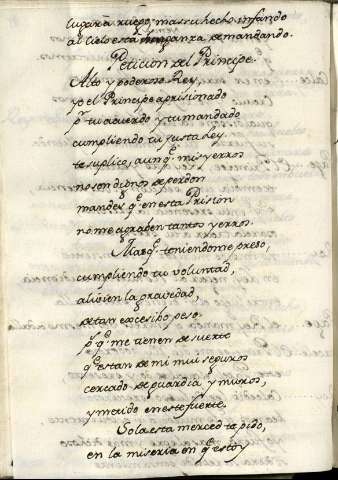 lugar a ruego, mas tu hecho infando
al Cielo está venganza demandando.
Peticion del Principe.
Alto y poderoso Rey
yo el Principe aprisionado
pr. tu acuerdo y tu mandado
cumpliendo tu justa Ley.
te suplico, aunq̃. mis yerros
no son dignos de perdon
mandes q̃. en esta Prision
no me agraben tantos yerros.
Mas q̃. teniendome preso,
cumpliendo tu voluntad,
alivien la gravedad,
de tan excesibo peso.
pr. q̃. me tienen de suerte
q̃. estan de mi mui seguros
cercado de guardia y muros,
y metido en este fuerte.
Sola esta merced te pido,
en la miseria en q̃. estoy